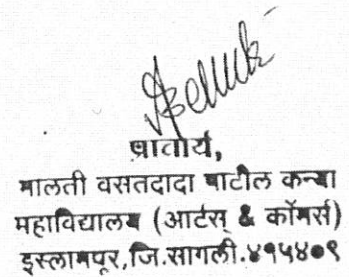 प्राचार्य,
मालती वसंतदादा पाटील कन्या
महाविद्यालय (आर्टस् & कॉमर्स)
इस्लामपूर,जि.सांगली.४१५४०९